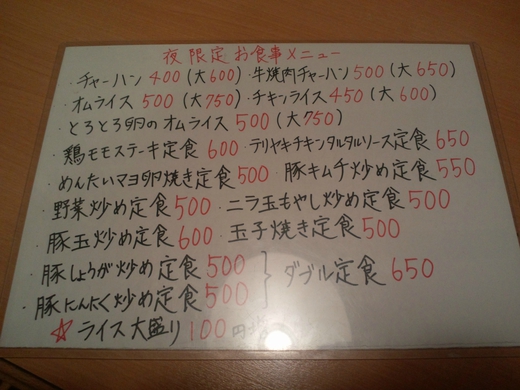 夜限定お食事メニュー
・チャーハン 400（大600）・牛焼肉チャーハン 500（大 650）
・オムライス 500（大750）・チキンライス 450（大 600）
・とろとろ卵のオムライス 500（大750）
・鶏モモステーキ定食 600・テリヤキチキンタルタルソース定食 650
・めんたいマヨ卵焼き定食 500・豚キムチ炒め定食 550
・野菜炒め定食 500・ニラ玉もやし炒め定食 500
・豚玉炒め定食 600・玉子焼き定食 500
・豚しょうが炒め定食 500
・豚にんにく炒め定食 500
} ダブル定食 650
☆ライス大盛り 100円